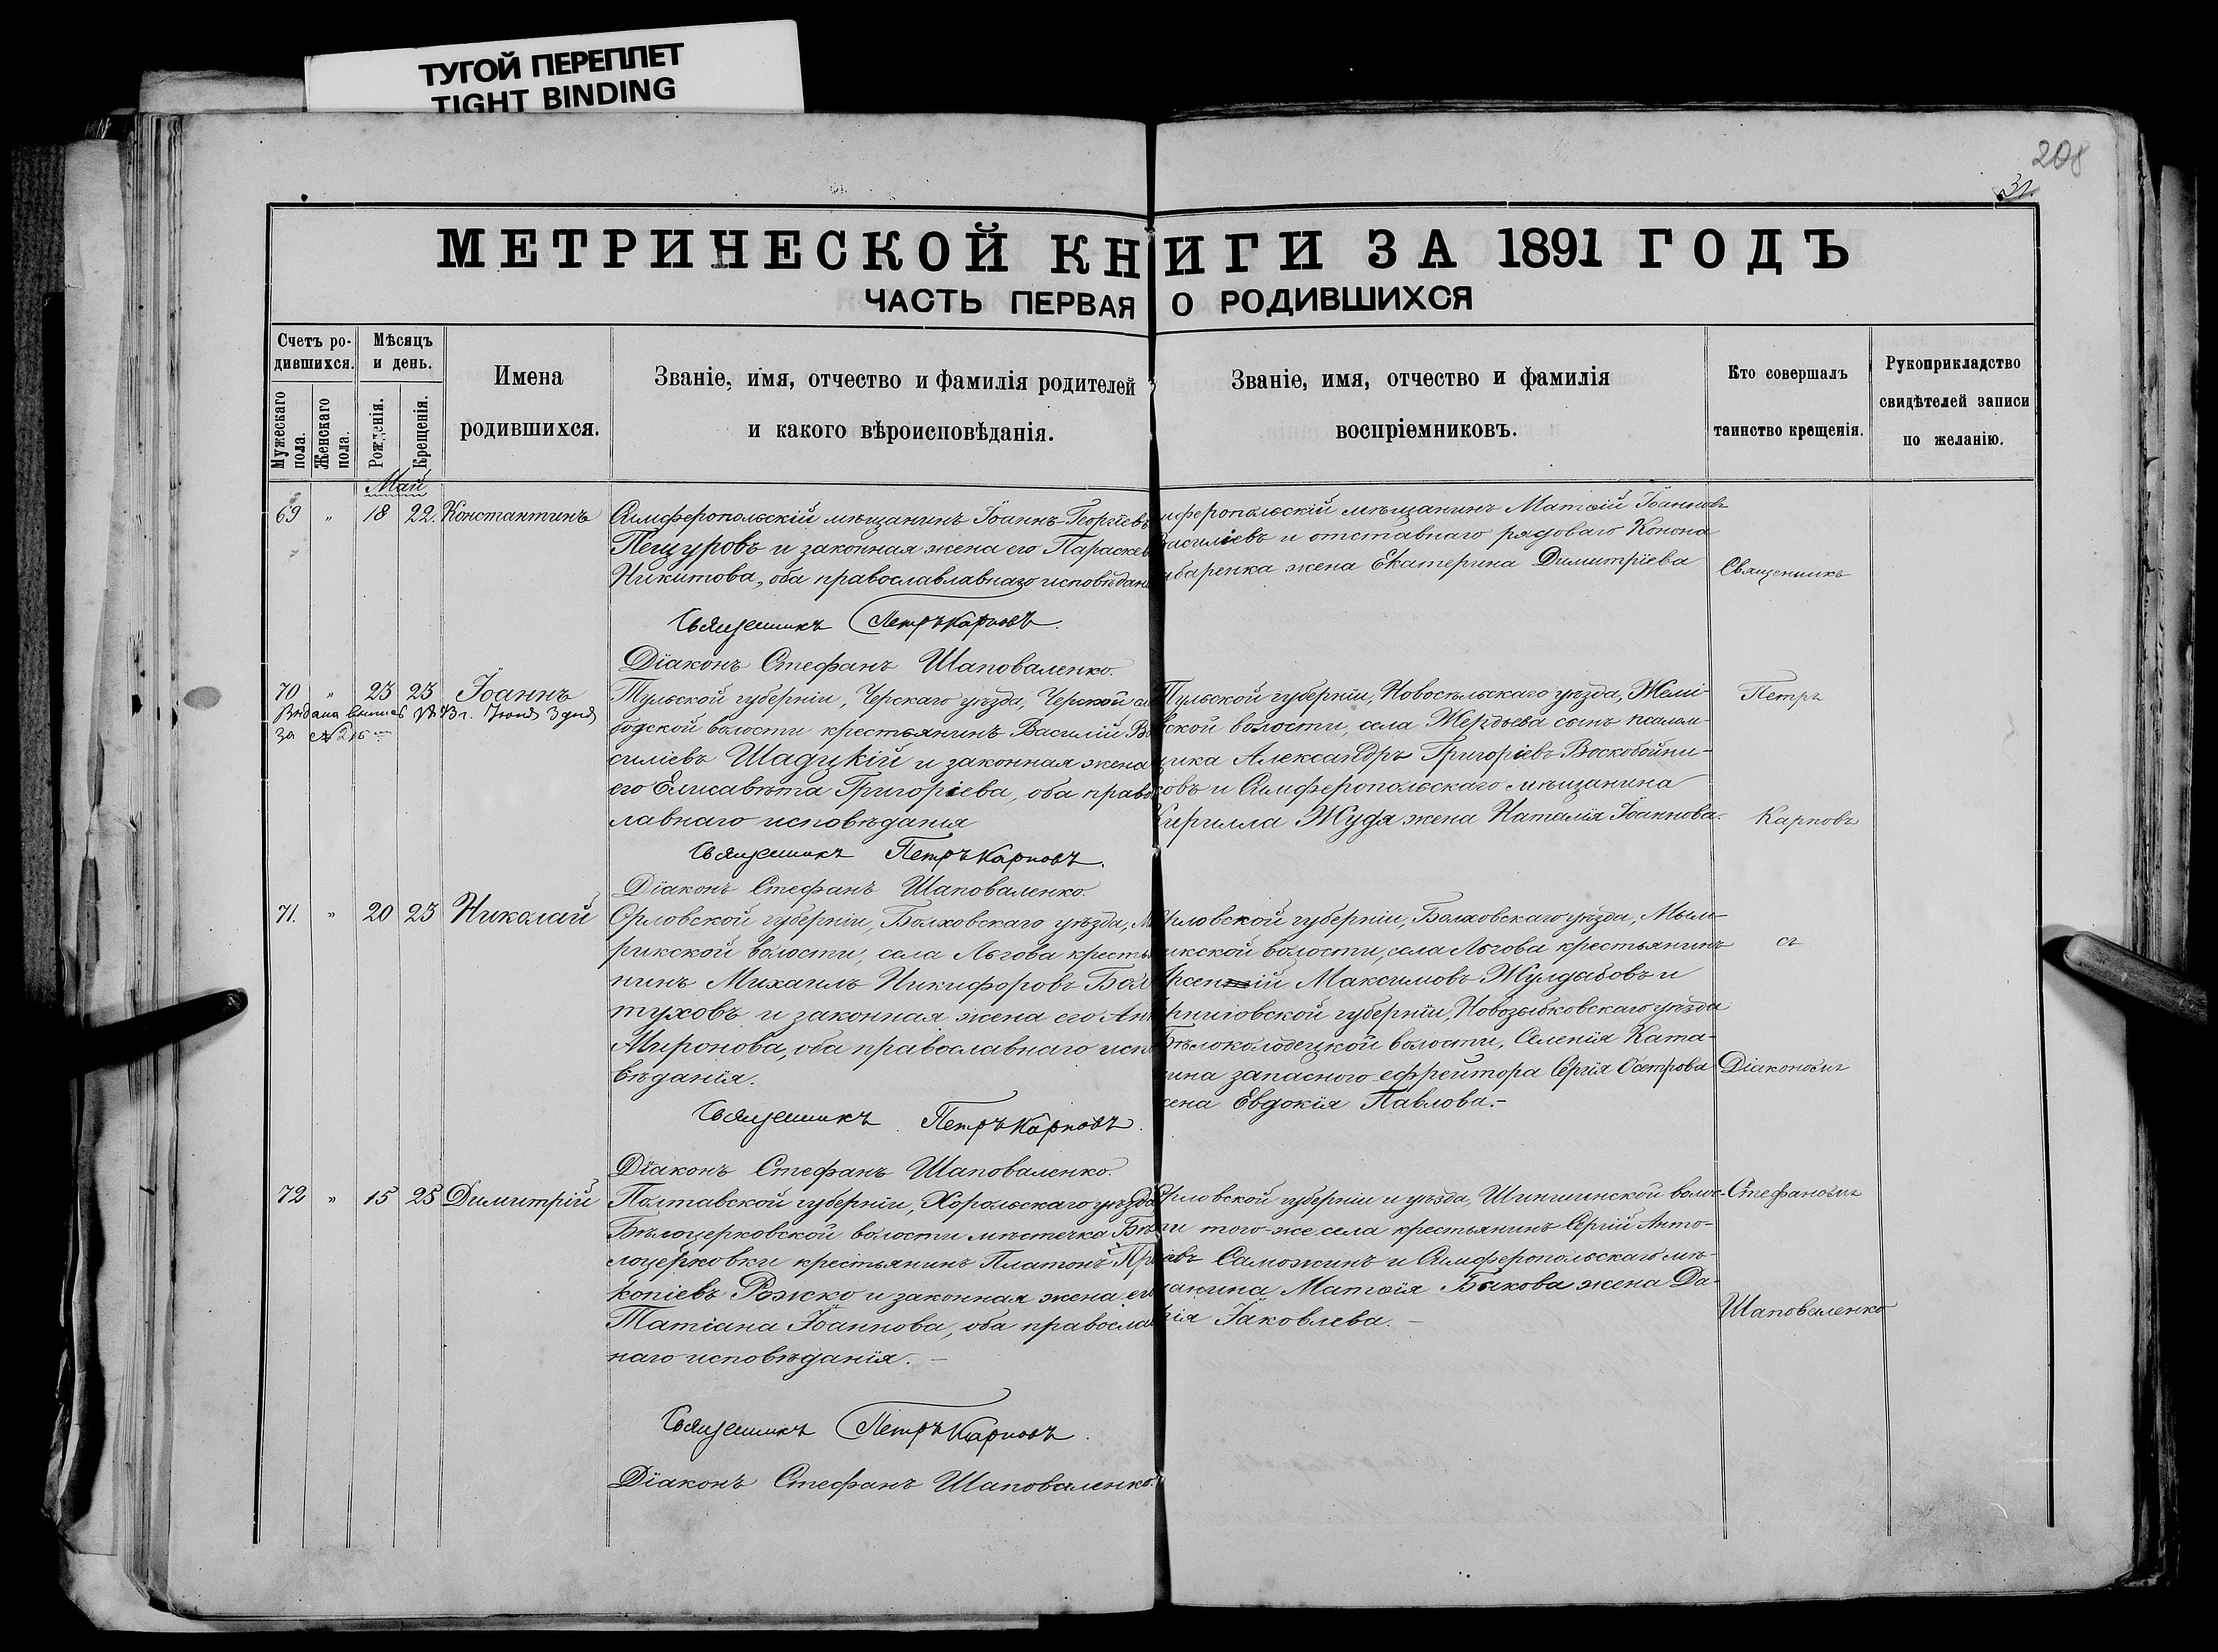 ТУГОЙ ПЕРЕПЛЕТ
TIGHT BINDING
208
31.
МЕТРИЧЕСКОЙ КНИГИ ЗА 1891 ГОДЪ
ЧАСТЬ ПЕРВАЯ О РОДИВШИХСЯ
Счетъ ро-
дившихся.
Мужескаго
пола.
Женскаго
пола.
Мѣсяцъ
и день.
Рожденія.
Крещенія.
Имена
родившихся.
Званіе, имя, отчество и фамилія родителей
и какого вѣроисповѣданія.
Званіе, имя, отчество и фамилія
воспріемниковъ.
Кто совершалъ
таинство крещенія.
Рукоприкладство
свидѣтелей записи
по желанію.
Май
69 " 18 22. Константинъ
Симферопольскій мѣщанинъ Іоаннъ Георгіевъ
Пещуровъ и законная жена его Параскев
Никитова, оба православлавнаго исповѣдан
Священникъ Петръ Карповъ.
Діаконъ Стефанъ Шаповаленко.
мферопольскій мѣщанинъ Матѳій Іоанновъ
Василіевъ и отставнаго рядоваго Конона
баренка жена Екатерина Димитріева
70 " 23 23 Іоаннъ
Выдана 3 дня
за № 216
Тульской губерніи, Чернскаго уѣзда, Чернской сло
бодской волости крестьянинъ Василій Ва
силіевъ Шадцкій и законная жена
его Елисавета Григоріева, оба право
лавнаго исповѣданія
Священникъ Петръ Карповъ.
Діаконъ Стефанъ Шаповаленко.
Тульской губерніи, Новосильскаго уѣзда, Жеми-
ской волости, села Жердева сынъ псалом-
щика Александръ Григоріевъ Воскобойни-
ковъ и Симферопольскаго мѣщанина
Кирилла Жудя жена Наталія Іоаннова.
71. " 20 23 Николай
Орловской губерніи, Болховскаго уѣзда, М
рикской волости, села Льгова крестья
нинъ Михаилъ Никифоровъ Бол
туховъ и законная жена его Ан
Миронова, оба православнаго испо
вѣданія.
Священникъ Петръ Карповъ.
Діаконъ Стефанъ Шаповаленко.
рловской губерніи, Болховскаго уѣзда, Мым-
икской волости, села Льгова крестьянинъ
Арсеній Максимовъ Жулдабовъ и
рниговской губерніи, Новозыбковскаго уѣзда
Бѣлоколодецкой волости, Селенія Ката-
ина запаснаго ефрейтора Сергія Осетрова
жена Евдокія Павлова.-
72 " 15 25 Димитрій
Полтавской губерніи, Хорольскаго уѣзда
Бѣлоцерковской волости мѣстечка Бѣ
лоцерковки крестьянинъ Платонъ Про
копіевъ Рожко и законная жена его
Татіана Іоаннова, оба православ
наго исповѣданія. -
Священникъ Петръ Карповъ.
Діаконъ Стефанъ Шаповаленко.
рловской губерніи и уѣзда, Шишинской волос-
ти того-же села крестьянинъ Сергій Анто-
іевъ Саможинъ и Симферопольскаго мѣ-
щанина Матѳія Быкова жена Да-
рія Іаковлева. -
Священникъ
Петръ
Карповъ
съ
Діакономъ
Стефаномъ
Шаповаленко